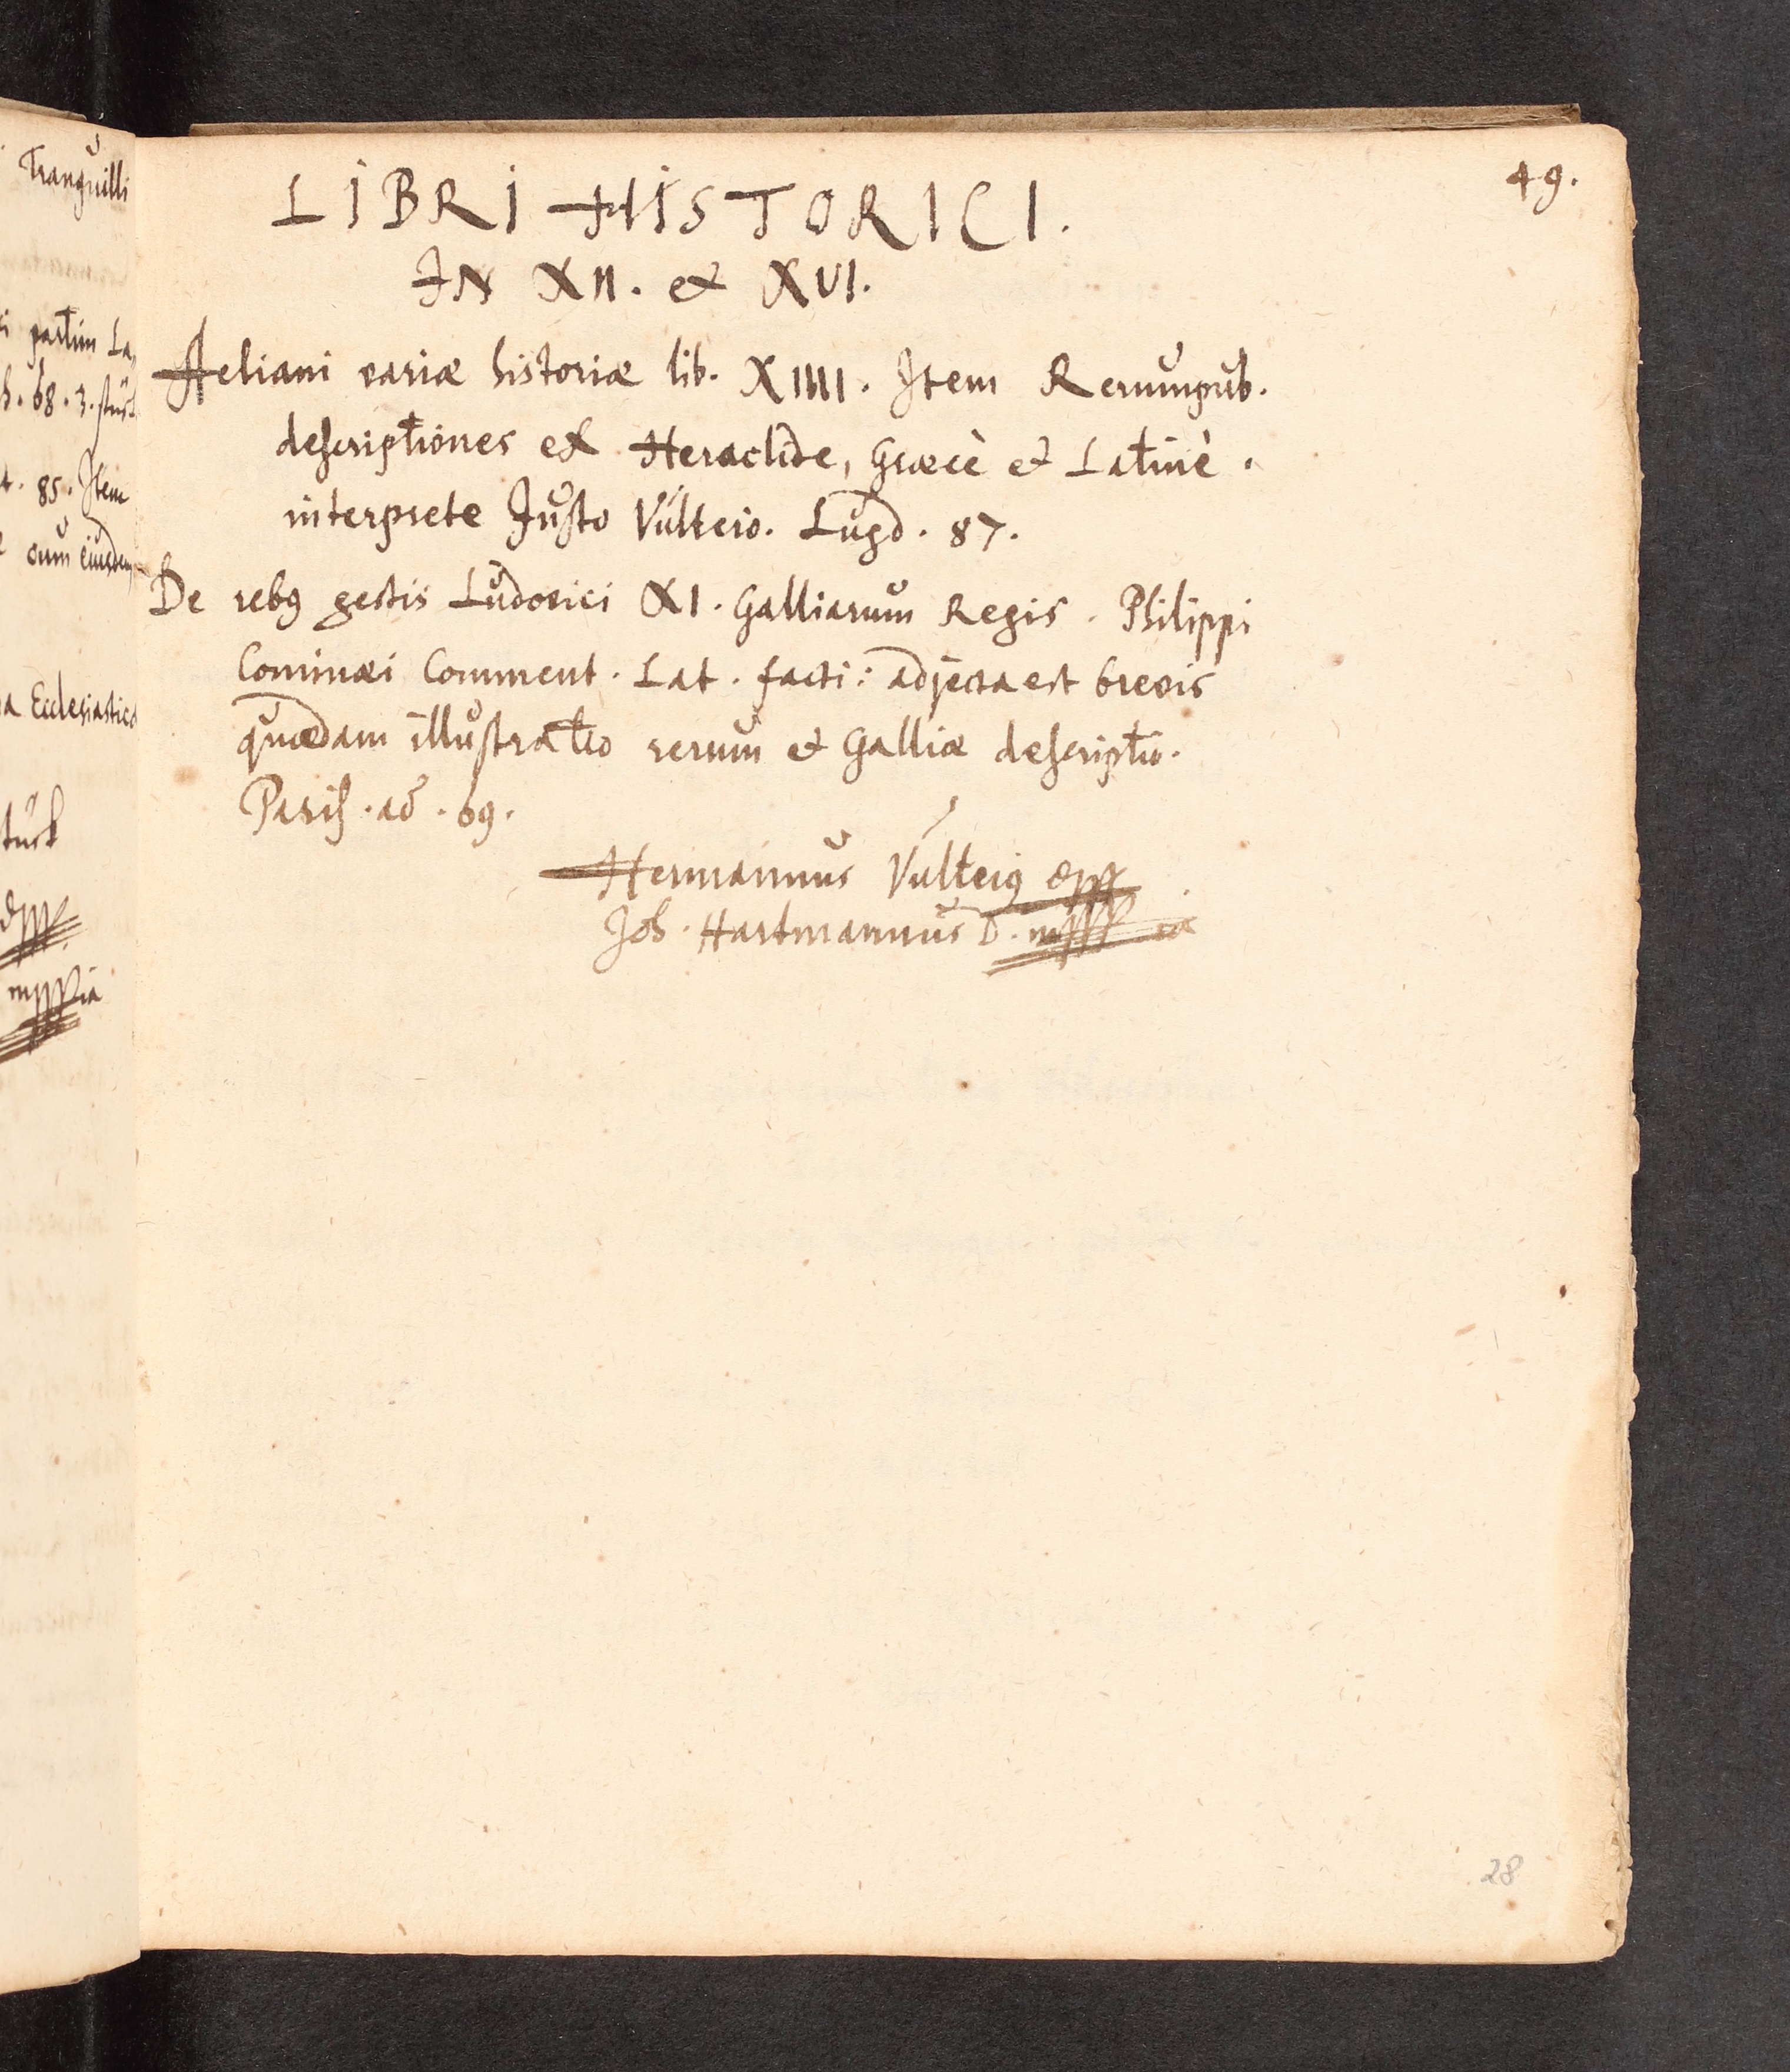 Tranquilli
partim La,
68. 3. stück
85. Item
cum eiusdem
Ecclesiastica
49.
LIBRI HISTORICI.
IN XII. et XVI.
Aeliani variæ historiæ lib. XIIII. Item Rerumpub.
descriptiones ex Heraclide, Græcè et Latinè.
interprete Justo Vulteio. Lugd. 87.
De rebus gestis Ludovici XI. Galliarum Regis. Philippi
Cominæi Comment. Lat. facti: adjecta est brevis
quædam illustratio rerum et Galliæ descriptio.
Paris. aō. 69.
Hermannus Vulteius
Joh. Hartmannus D. mppria
28